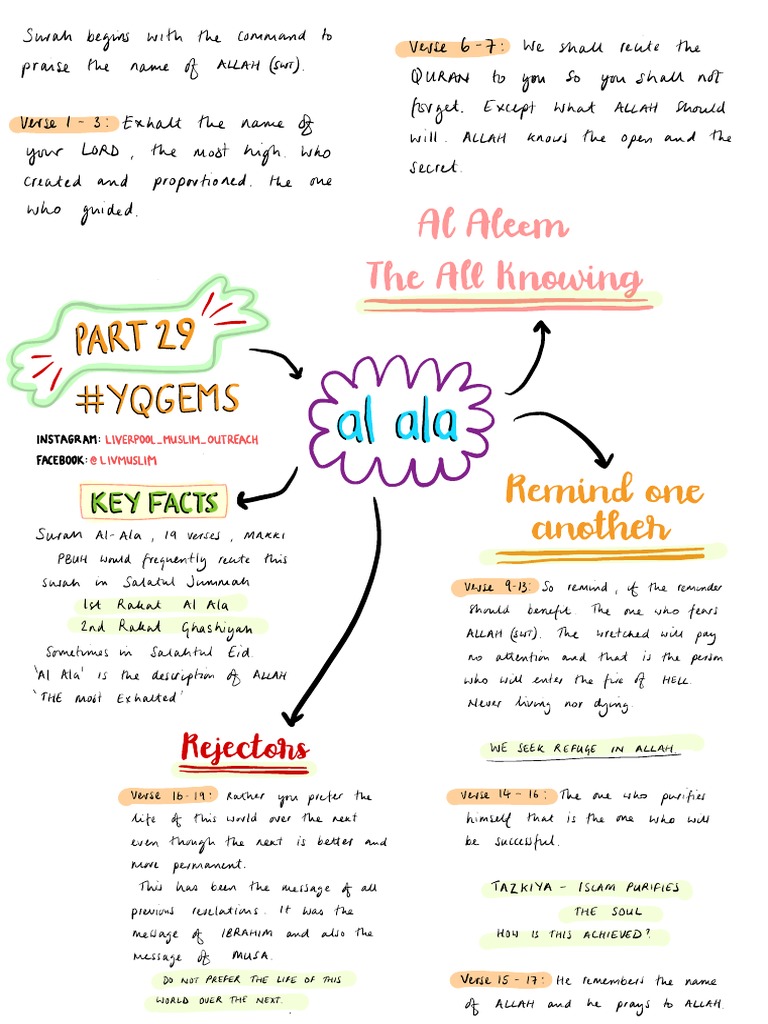 Surah begins with the command to
praise the name of ALLAH (SWT).
Verse 1 - 3: Exhalt the name of
your LORD, the most high. Who
created and proportioned. The one
who guided.
Verse 6 - 7: We shall recite the
QURAN to you so you shall not
forget. Except what ALLAH should
will. ALLAH knows the open and the
secret.
Al Aleem
The All Knowing
PART 29
#YQGEMS
INSTAGRAM: LIVERPOOL_MUSLIM_OUTREACH
FACEBOOK: @LIVMUSLIM
al ala
KEY FACTS
Surah Al-Ala, 19 verses, MAKKI
PBUH would frequently recite this
surah in Salatul Jummah
1st Rakat Al Ala
2nd Rakat Ghashiyah
Sometimes in Salahtul Eid.
'Al Ala' is the description of ALLAH
'THE most Exhalted'
Remind one
another
Verse 9-13: So remind, if the reminder
should benefit. The one who fears
ALLAH (SWT). The wretched will pay
no attention and that is the person
who will enter the fire of HELL.
Never living nor dying.
WE SEEK REFUGE IN ALLAH.
Verse 14 - 16: The one who purifies
himself that is the one who will
be successful.
TAZKIYA - ISLAM PURIFIES
THE SOUL
HOW IS THIS ACHIEVED?
Verse 15 - 17: He remembers the name
of ALLAH and he prays to ALLAH.
Rejectors
Verse 16 - 19: Rather you prefer the
life of this world over the next
even though the next is better and
more permanent.
This has been the message of all
previous revelations. It was the
message of IBRAHIM and also the
message of MUSA.
DO NOT PREFER THE LIFE OF THIS
WORLD OVER THE NEXT.